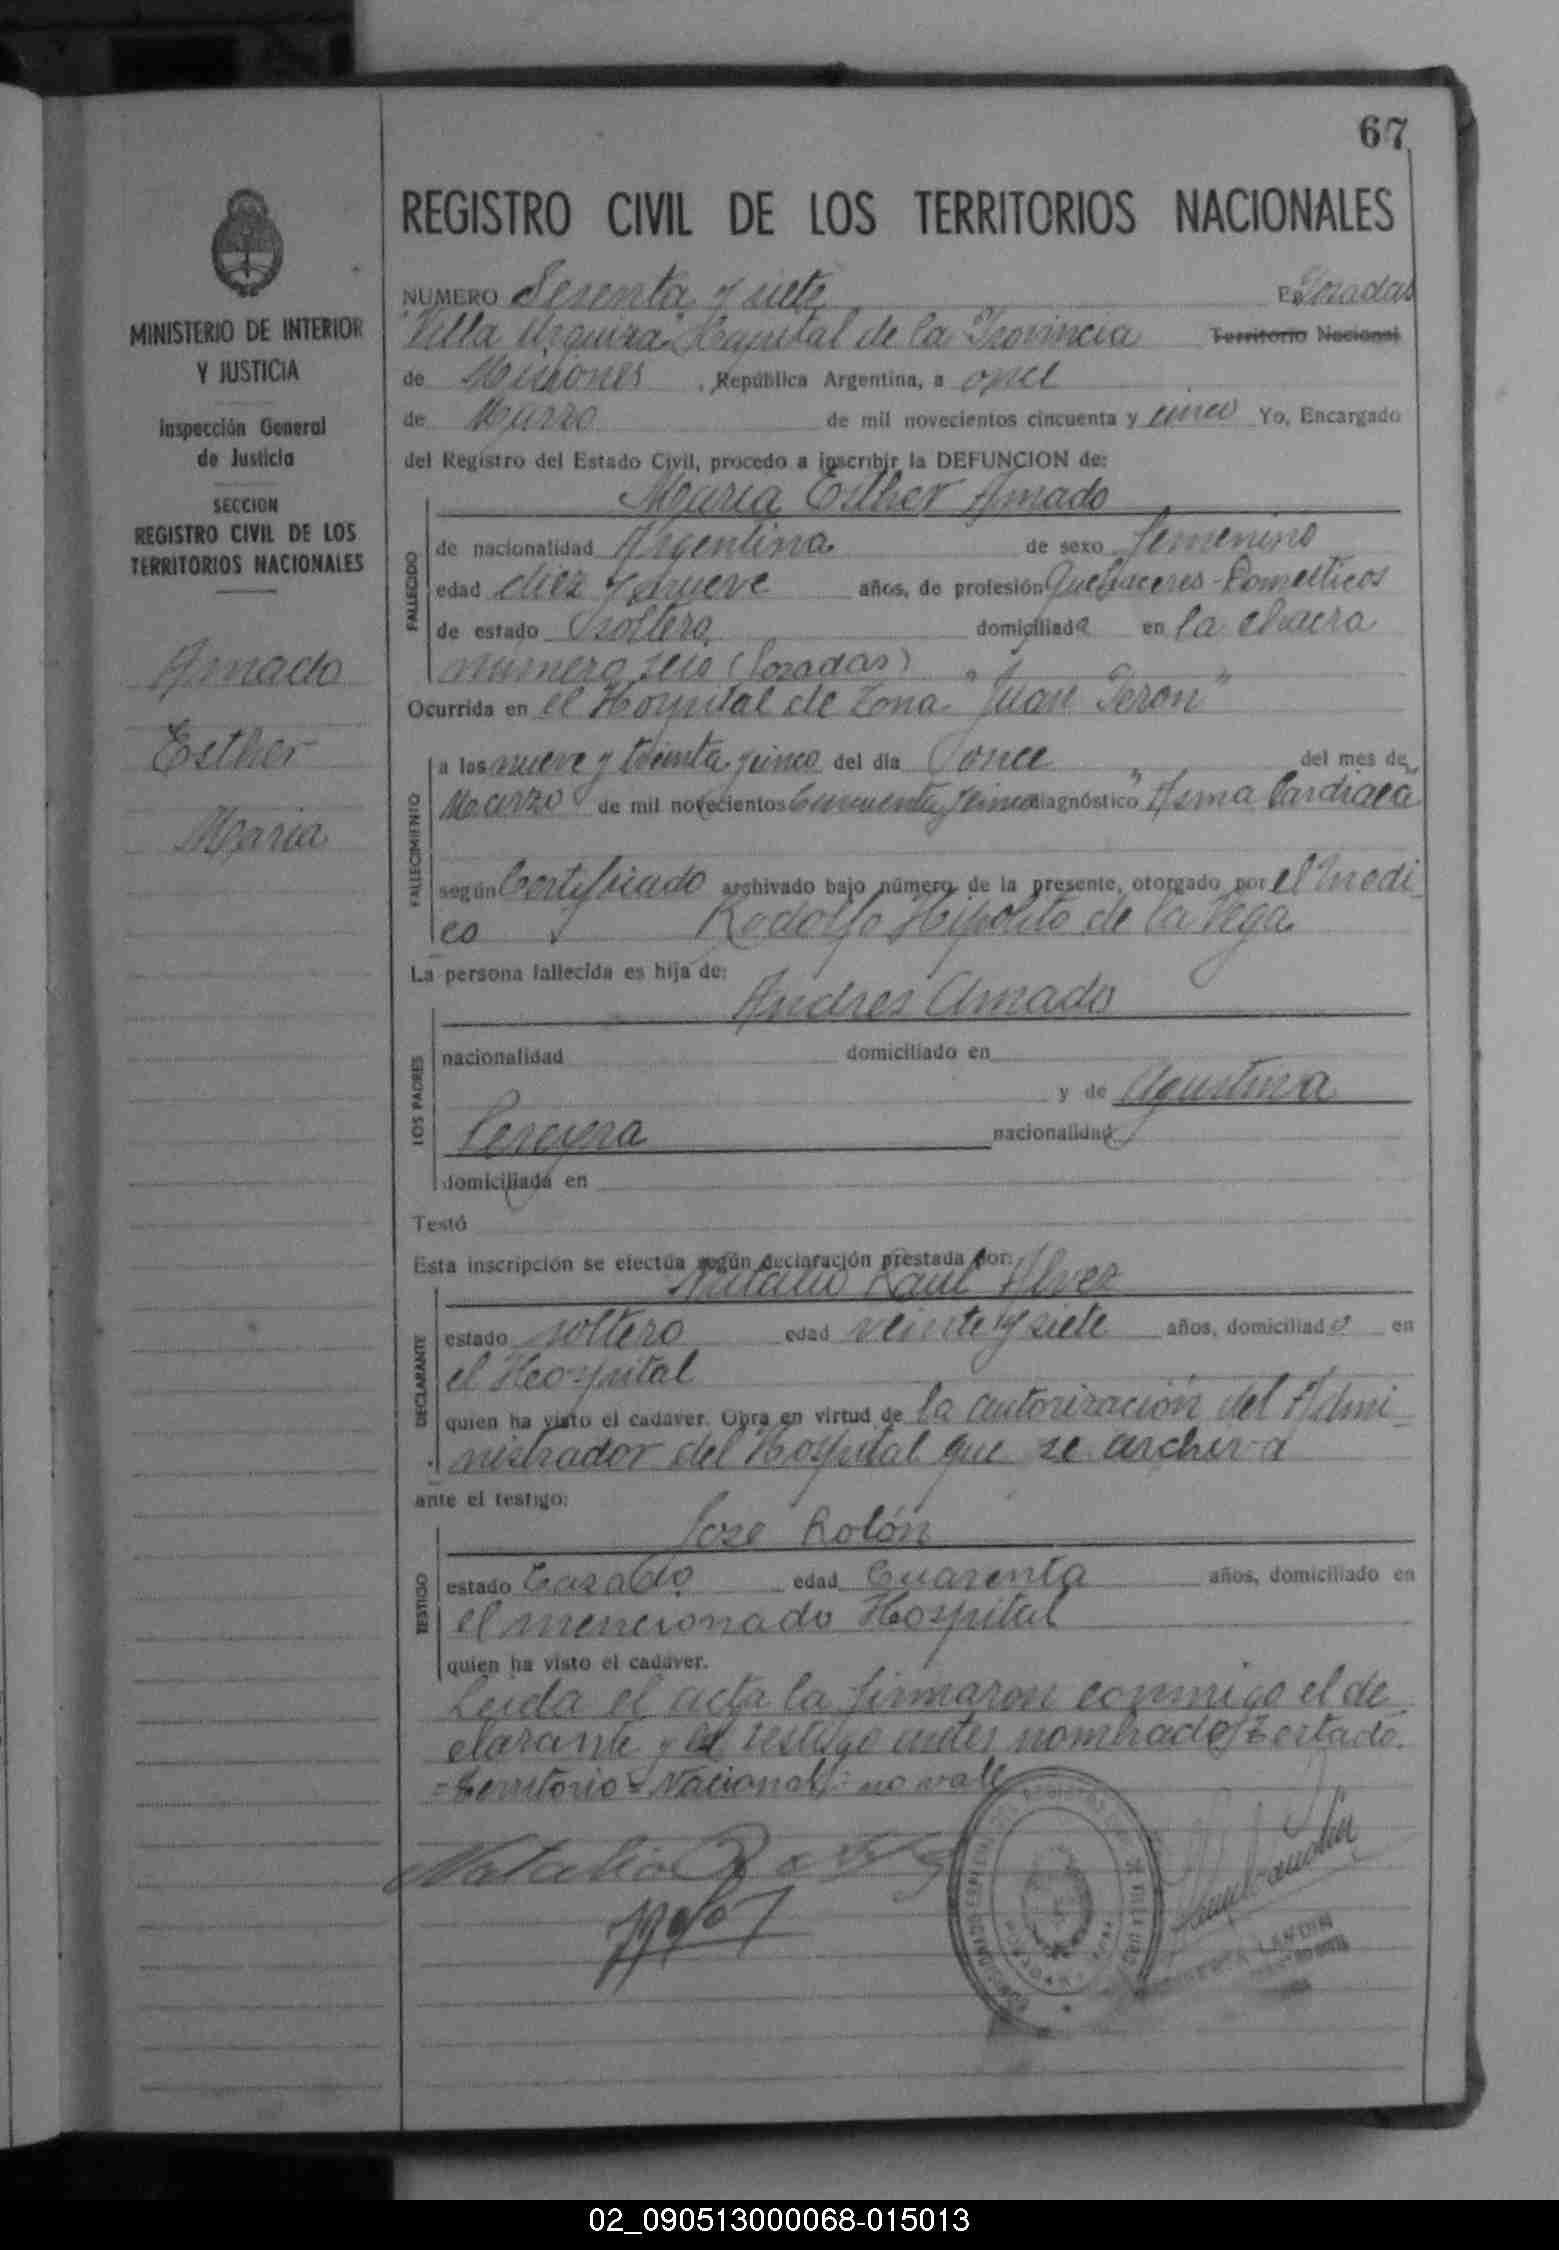 67
REGISTRO CIVIL DE LOS TERRITORIOS NACIONALES
MINISTERIO DE INTERIOR
Y JUSTICIA
Inspección General
de Justicia
SECCION
REGISTRO CIVIL DE LOS
TERRITORIOS NACIONALES
Amado
Esther
Maria
NUMERO Sesenta y siete En Posadas
"Villa Urquiza" Capital de la Provincia Territorio Nacional
de Misiones, República Argentina, a once
de Marzo de mil novecientos cincuenta y cinco Yo, Encargado
del Registro del Estado Civil, procedo a inscribir la DEFUNCION de:
Maria Esther Amado
FALLECIDO
de nacionalidad Argentina de sexo femenino
edad diez y nueve años, de profesión Quehaceres-Domesticos
de estado soltera domiciliada en la chacra
número seis (Posadas)
Ocurrida en el Hospital de Zona "Juan Peron"
FALLECIMIENTO
a las nueve y treinta y cinco del día once del mes de
Marzo de mil novecientos Cincuenta y cinco diagnóstico "Asma Cardiaca
según Certificado archivado bajo número de la presente, otorgado por el Medi-
co Rodolfo Hipolito de la Vega
La persona fallecida es hija de:
Andres Amado
LOS PADRES
nacionalidad domiciliado en
y de Agustina
Pereyra nacionalidad
domiciliada en
Testó
Esta inscripción se efectúa según declaración prestada por:
Natalio Raul Alvez
DECLARANTE
estado soltero edad veinte y siete años, domiciliado en
el Hospital
quien ha visto el cadáver. Obra en virtud de la autorización del Admi-
nistrador del Hospital que se archiva
ante el testigo:
Jose Rolón
TESTIGO
estado Casado edad Cuarenta años, domiciliado en
el mencionado Hospital
quien ha visto el cadáver.
Leida el acta la firmaron conmigo el de-
clarante y el testigo antes nombrado Testado:
-Territorio-Nacional: no vale
Natalio R
LANDIN
02_090513000068-015013